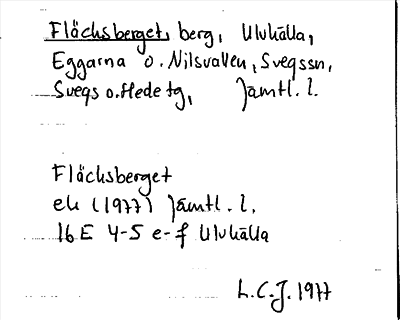 Fläcksberget, berg, Ulvkälla,
Eggarna o. Nilsvallen, Svegssn,
Svegs o. Hede tg, Jämtl. l.
Fläcksberget
ek (1977) Jämtl. l.
16 E 4-5 e-f Ulvkälla
L.C.J. 1977